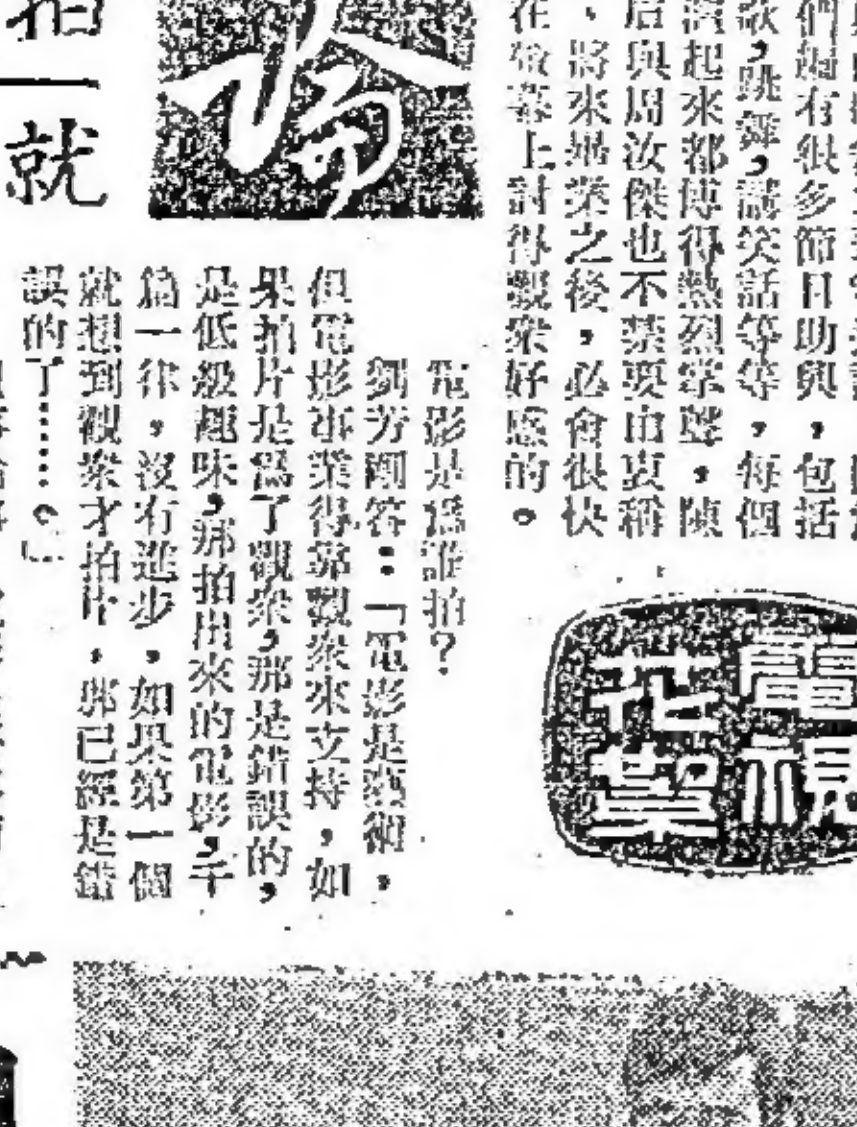 們編有很多節目助興，包括
歌，跳舞，講笑話等等，每個
演起來都博得熱烈掌聲，陳
后與周汝傑也不禁要由衷稱
，將來畢業之後，必會很快
在敬幕上討得觀衆好感的。
電視
花絮
電影是爲誰拍？
劉芳剛答：「電影是藝術，
但電影事業得靠觀衆來支持，如
果拍片是爲了觀衆，那是錯誤的，
是低級趣味，那拍出來的電影，千
篇一律，沒有進步，如果第一個
就想到觀衆才拍片，那已經是錯
誤的了……。」
拍一就